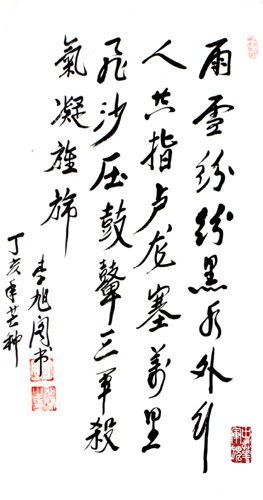 雨雪纷纷黑水外行
人共指卢龙塞萬里
飛沙压鼓鼙三军殺
氣凝旌旆
李旭阁书
丁亥年芒种